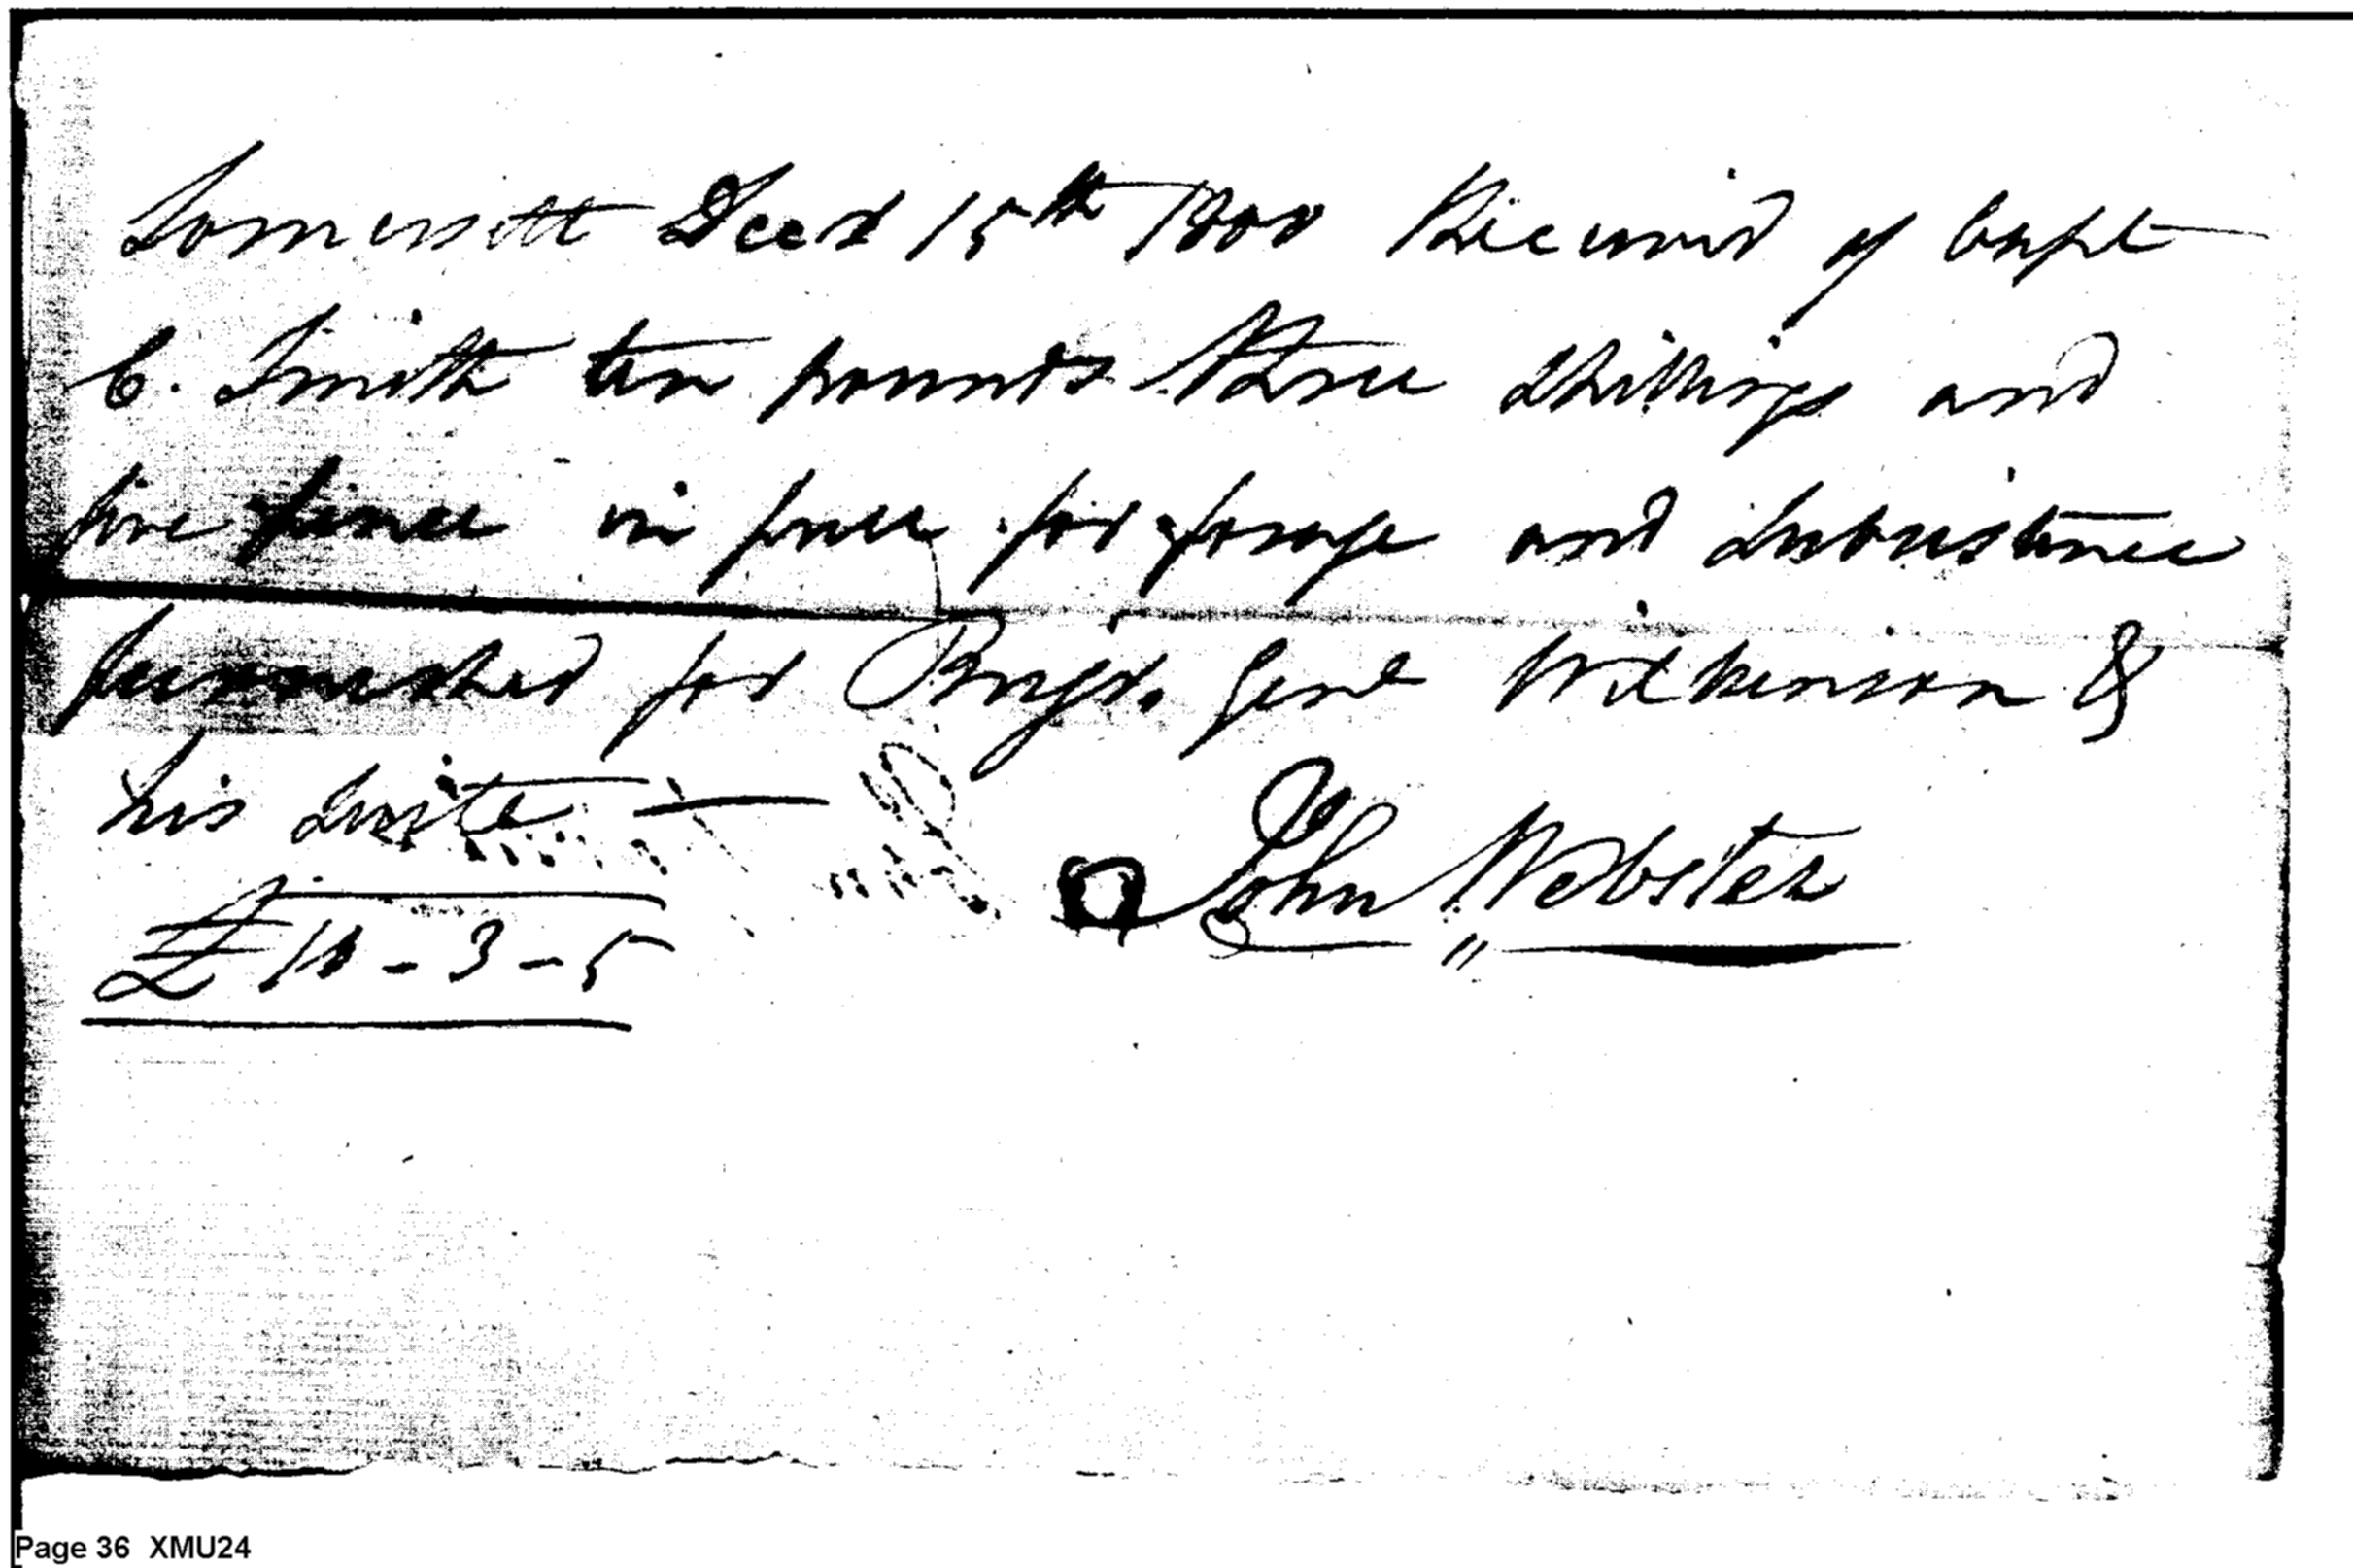 Somersett Decr 15th 1800 Received of Capt
C. Smith ten pounds three shillings and
five pence in full for forage and subsistence
furnished for Brigr. Genl Wilkinson &
his suite —
John Webster
£10-3-5
Page 36 XMU24